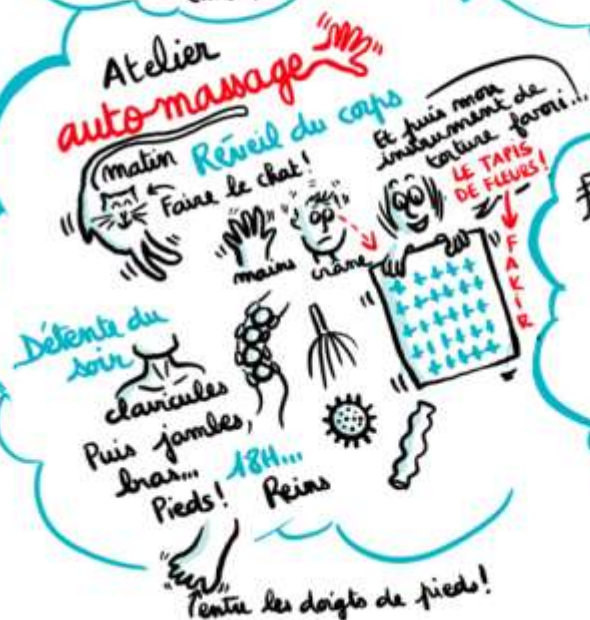 Atelier
auto-massage
matin Réveil du corps
Faire le chat!
mains crâne
Et puis mon
instrument de
torture favori...
LE TAPIS
DE FLEURS!
FAKIR
Détente du
soir
clavicules
Puis jambes,
bras...
Pieds!
18H...
Reins
entre les doigts de pieds!